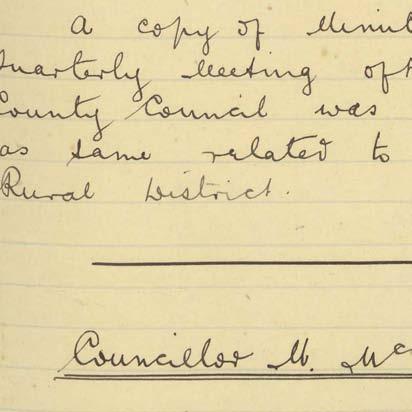 A copy of Minut
Quarterly Meeting of
County Council was
as same related to
Rural District.
Councillor M. Mc